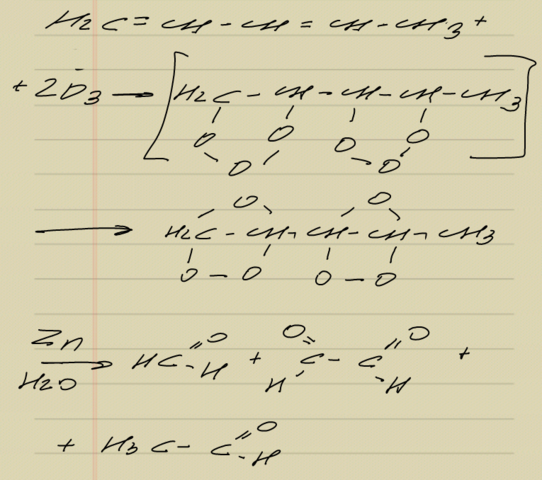 H₂C = CH - CH = CH - CH₃ +
+ 2O₃ → [H₂C - CH - CH - CH - CH₃]
O O O O
O O
O O
→ H₂C - CH - CH - CH - CH₃
O - O O - O
Zn
H₂O
→ HC=O -H + O=C-C=O H H +
+ H₃C - C=O -H